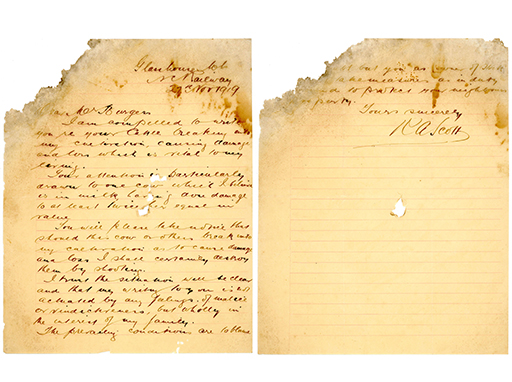 Railway
Nov 1919
Dear Mr Burgess
I am compelled to write
you re your cattle breaking into
my cultivation, causing damage
and loss which is vital to my
living.
Your attention is particularly
drawn to one cow which I believe
is in milk having done damage
to at least twice her equal in
value.
You will please take notice that
should this cow or others break into
my cultivation as to cause damage
and loss I shall certainly destroy
them by shooting.
I trust the situation will be clear
and that my writing to you is not
actuated by any feelings of malice
or vindictiveness, but wholly in
the interest of my family.
The prevailing conditions are to blame
not but you as
as in duty
to protect your neighbours
property.
Yours sincerely
Scott